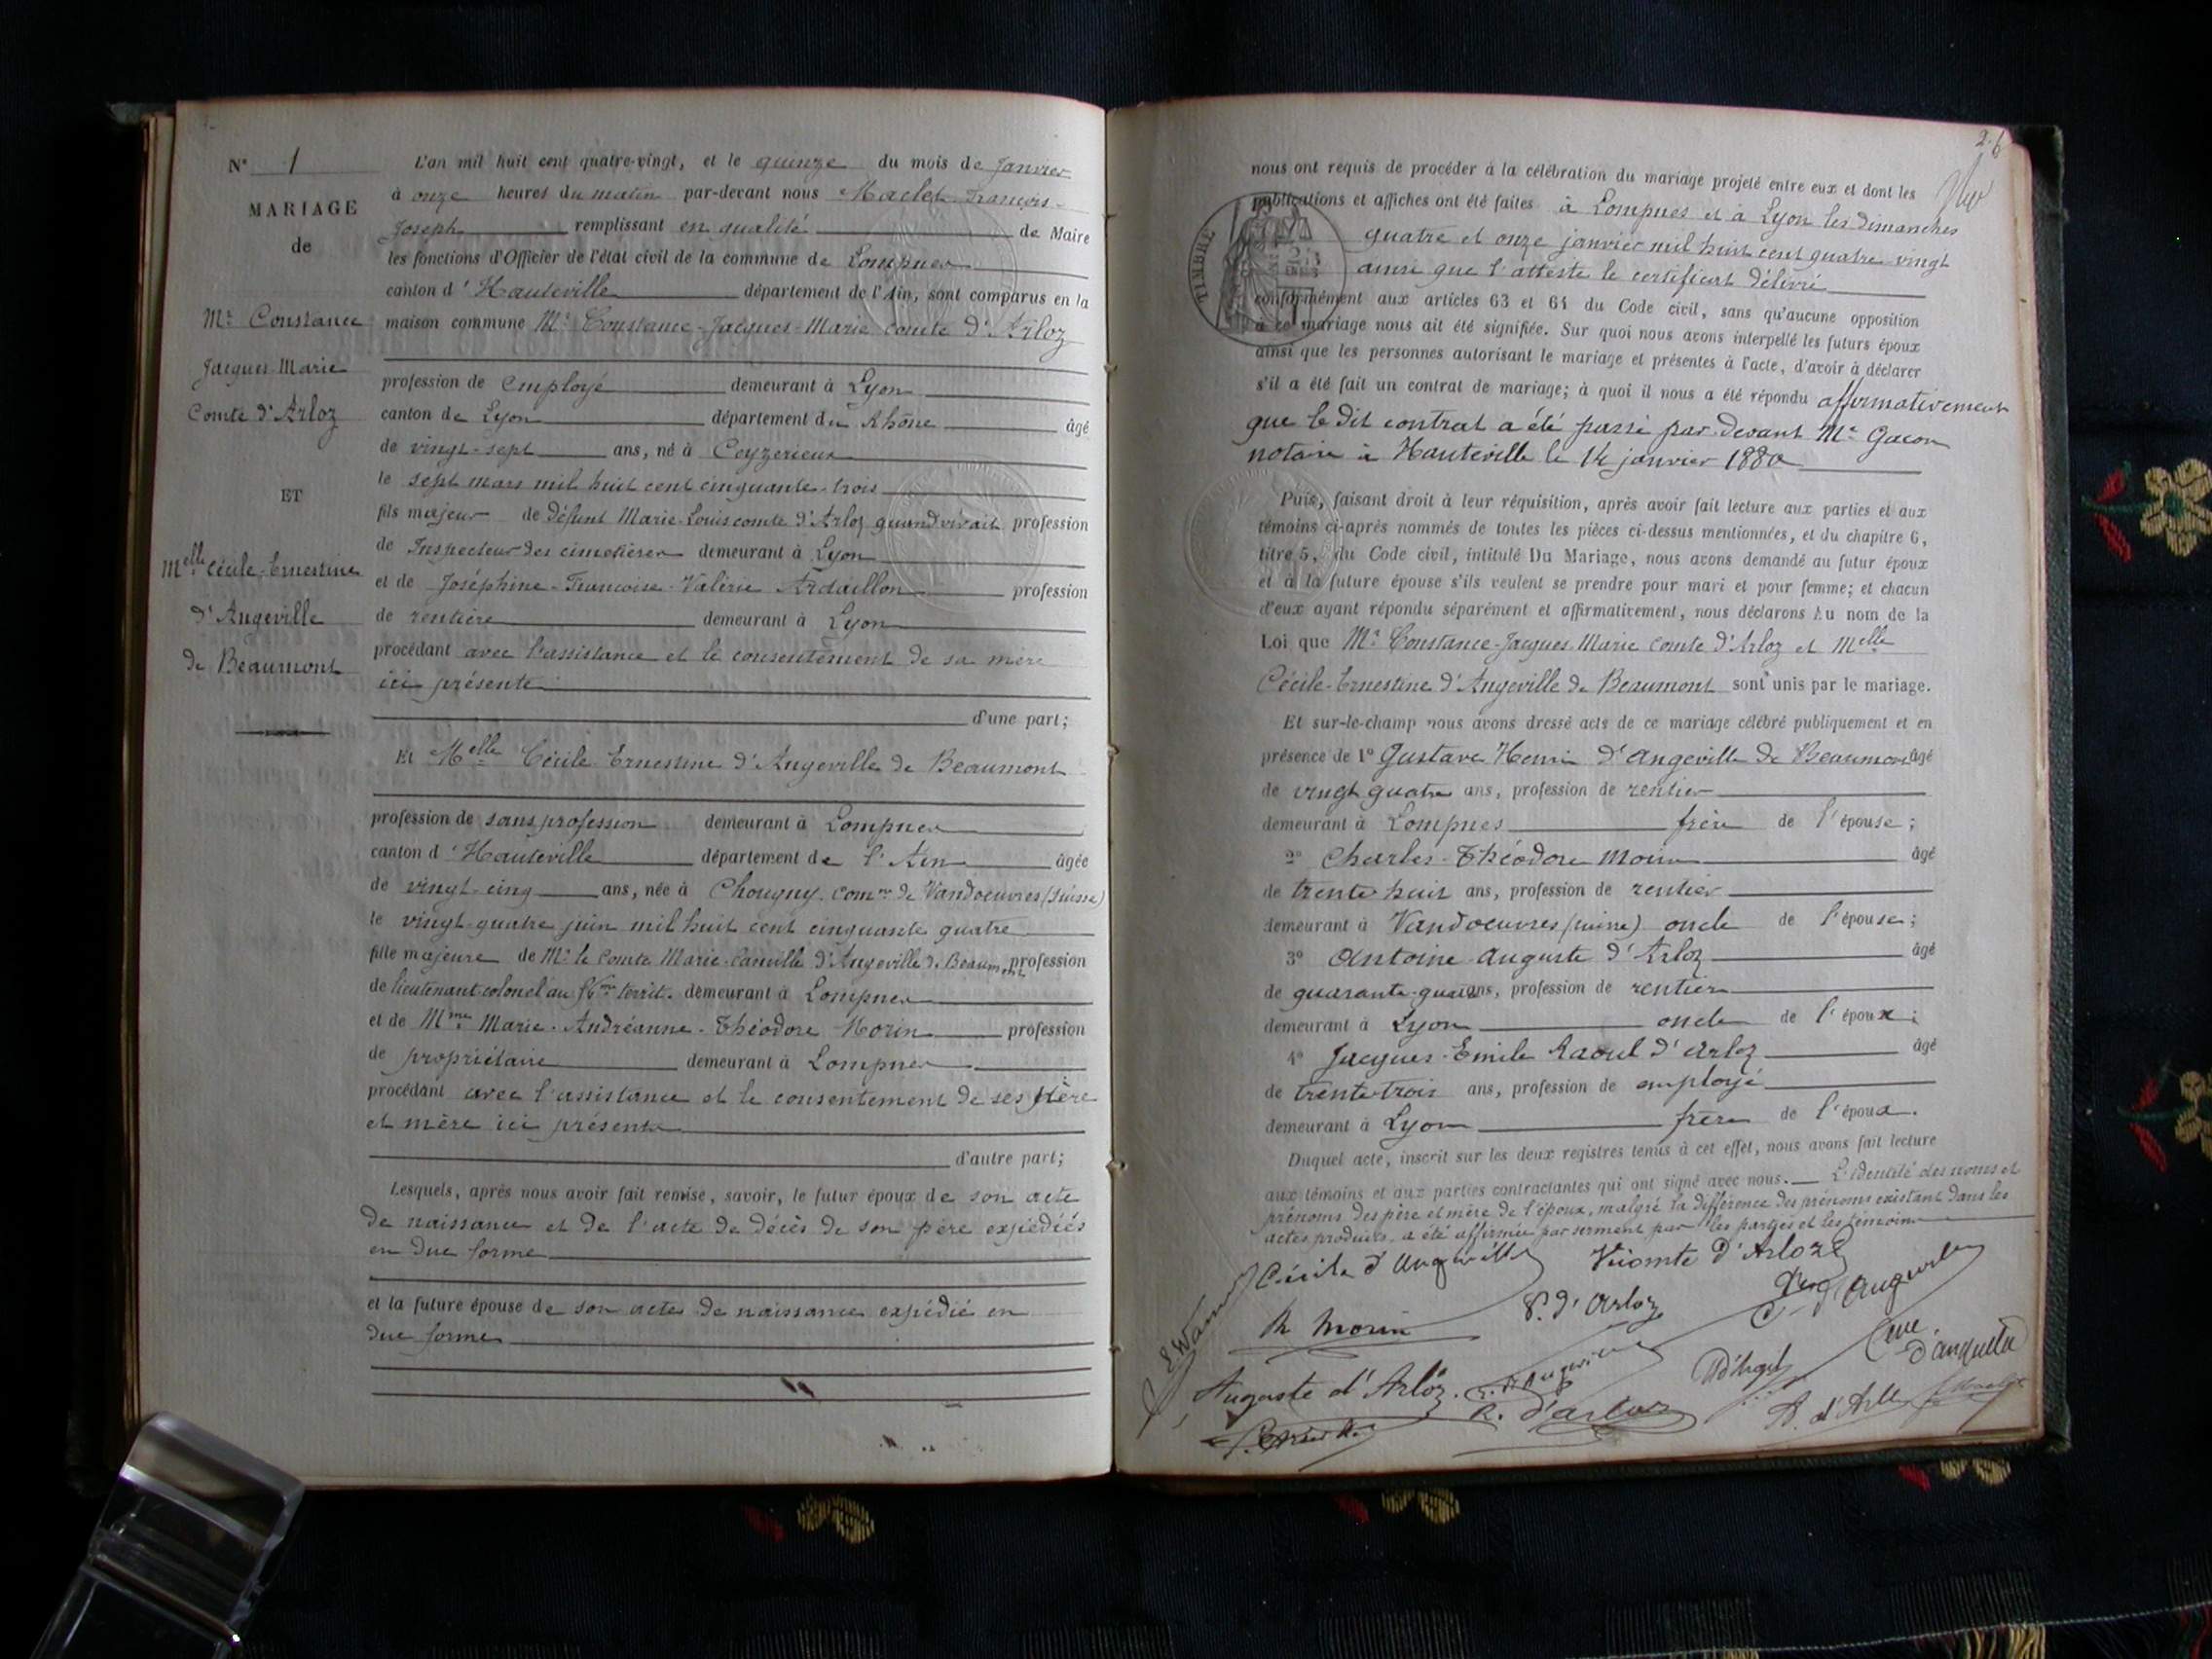 N° 1
MARIAGE
de
Mr Constance
Jacques-Marie
Comte d'Arloz
ET
Melle Cécile-Ernestine
d'Angeville
de Beaumont
L'an mil huit cent quatre-vingt, et le quinze du mois de Janvier
à onze heures du matin par-devant nous Maclet François-
Joseph remplissant en qualité de Maire
les fonctions d'Officier de l'état civil de la commune de Lompnes
canton d'Hauteville département de l'Ain, sont comparus en la
maison commune Mr Constance-Jacques-Marie comte d'Arloz
profession de employé demeurant à Lyon
canton de Lyon département du Rhône âgé
de vingt-sept ans, né à Ceyzerieux
le sept mars mil huit cent cinquante-trois
fils majeur de défunt Marie-Louis comte d'Arloz quand vivait profession
de Inspecteur des cimetières demeurant à Lyon
et de Joséphine-Francoise-Valérie Ardaillon profession
de rentière demeurant à Lyon
procédant avec l'assistance et le consentement de sa mère
ici présente
d'une part;
Et Melle Cécile Ernestine d'Angeville de Beaumont
profession de sans profession demeurant à Lompnes
canton d'Hauteville département de l'Ain âgée
de vingt-cinq ans, née à Chougny comne de Vandoeuvres (Suisse)
le vingt-quatre juin mil huit cent cinquante quatre
fille majeure de Mr le Comte Marie-Camille d'Angeville de Beaumont profession
de lieutenant-colonel au territ. demeurant à Lompnes
et de Mme Marie-Andréanne-Théodore Morin profession
de propriétaire demeurant à Lompnes
procédant avec l'assistance et le consentement de ses père
et mère ici présents
d'autre part;
Lesquels, après nous avoir fait remise, savoir, le futur époux de son acte
de naissance et de l'acte de décès de son père expédiés
en due forme
et la future épouse de son acte de naissance expédié en
due forme
2.
nous ont requis de procéder à la célébration du mariage projeté entre eux et dont les
publications et affiches ont été faites à Lompnes et à Lyon les dimanches
quatre et onze janvier mil huit cent quatre-vingt
ainsi que l'atteste le certificat délivré
TIMBRE
conformément aux articles 63 et 64 du Code civil, sans qu'aucune opposition
à ce mariage nous ait été signifiée. Sur quoi nous avons interpellé les futurs époux
ainsi que les personnes autorisant le mariage et présentes à l'acte, d'avoir à déclarer
s'il a été fait un contrat de mariage; à quoi il nous a été répondu affirmativement
que le dit contrat a été passé par devant Me Gacon
notaire à Hauteville le 14 janvier 1880
Puis, faisant droit à leur réquisition, après avoir fait lecture aux parties et aux
témoins ci-après nommés de toutes les pièces ci-dessus mentionnées, et du chapitre 6,
titre 5, du Code civil, intitulé Du Mariage, nous avons demandé au futur époux
et à la future épouse s'ils veulent se prendre pour mari et pour femme; et chacun
d'eux ayant répondu séparément et affirmativement, nous déclarons Au nom de la
Loi que Mr Constance-Jacques-Marie comte d'Arloz et Melle
Cécile-Ernestine d'Angeville de Beaumont sont unis par le mariage.
Et sur-le-champ nous avons dressé acte de ce mariage célébré publiquement et en
présence de 1° Gustave Henri d'Angeville de Beaumont âgé
de vingt quatre ans, profession de rentier
demeurant à Lompnes frère de l'épouse;
2° Charles-Théodore Morin âgé
de trente huit ans, profession de rentier
demeurant à Vandoeuvres (suisse) oncle de l'épouse;
3° Antoine-Auguste d'Arloz âgé
de quarante-quatre ans, profession de rentier
demeurant à Lyon oncle de l'époux;
4° Jacques-Emile Raoul d'Arloz âgé
de trente-trois ans, profession de employé
demeurant à Lyon frère de l'époux.
Duquel acte, inscrit sur les deux registres tenus à cet effet, nous avons fait lecture
aux témoins et aux parties contractantes qui ont signé avec nous. L'identité des noms et
prénoms des père et mère de l'époux, malgré la différence des prénoms existant dans les
actes produits, a été affirmée par serment par les parties et les témoins
Cécile d'Angeville Vicomte d'Arloz
Th Morin V. d'Arloz
Auguste d'Arloz. R. d'Arloz